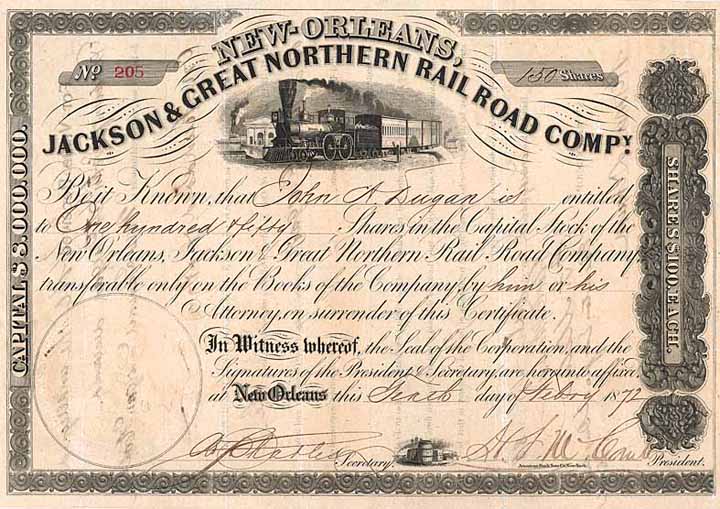 NEW-ORLEANS,
JACKSON & GREAT NORTHERN RAIL ROAD COMPY.
No 205
150 Shares
CAPITAL $ 8.000.000.
SHARES $ 100. EACH.
Be it Known, that John A. Dugan is entitled
to One hundred & fifty Shares in the Capital Stock of the
New Orleans, Jackson & Great Northern Rail Road Company
transferable only on the Books of the Company, by him or his
Attorney, on surrender of this Certificate.
In Witness whereof, the Seal of the Corporation, and the
Signatures of the President & Secretary, are hereunto affixed
at New Orleans this Tenth day of Febry 1872
Secretary.
American Bank Note Co. New York.
President.